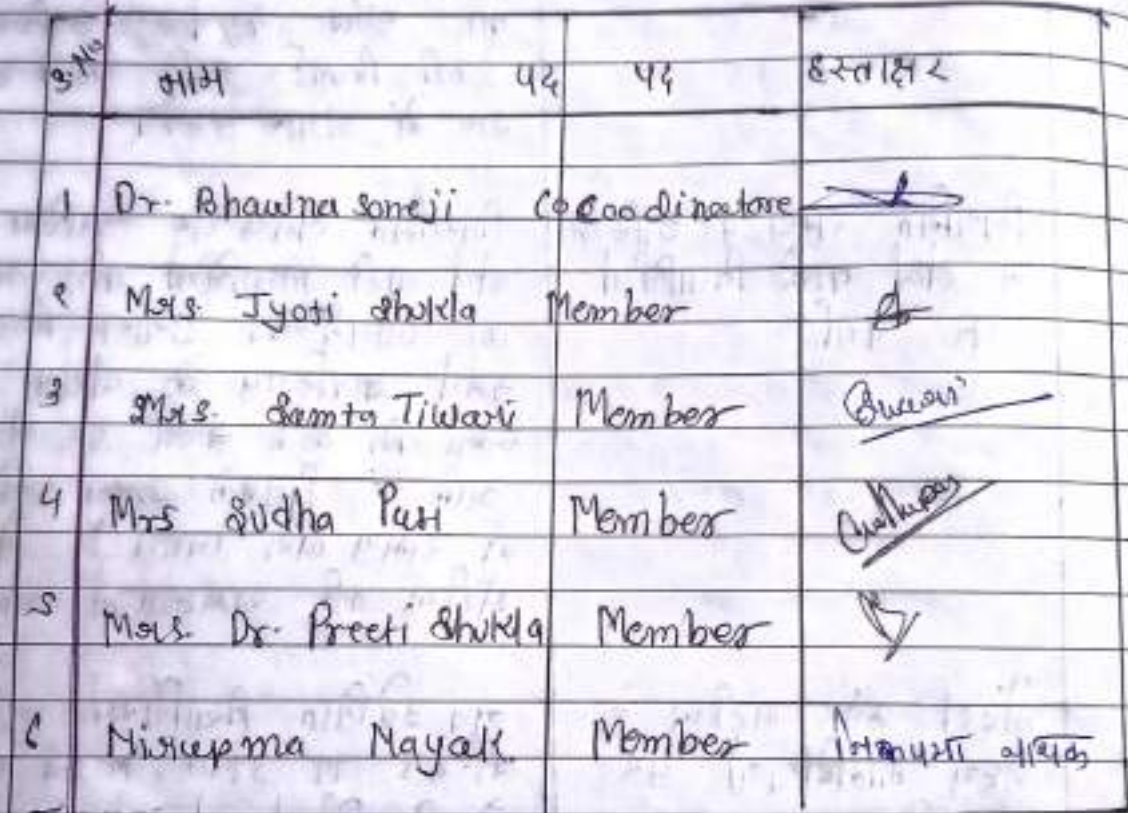 S.No नाम पद पद हस्ताक्षर
1 Dr. Bhawna Soneji Cocoodinatore
2 Mrs. Jyoti Shukla Member
3 Mrs. Samta Tiwari Member
4 Mrs Sudha Puri Member
5 Mrs. Dr. Preeti Shukla Member
6 Nirupma Nayak Member निरूपमा नायक